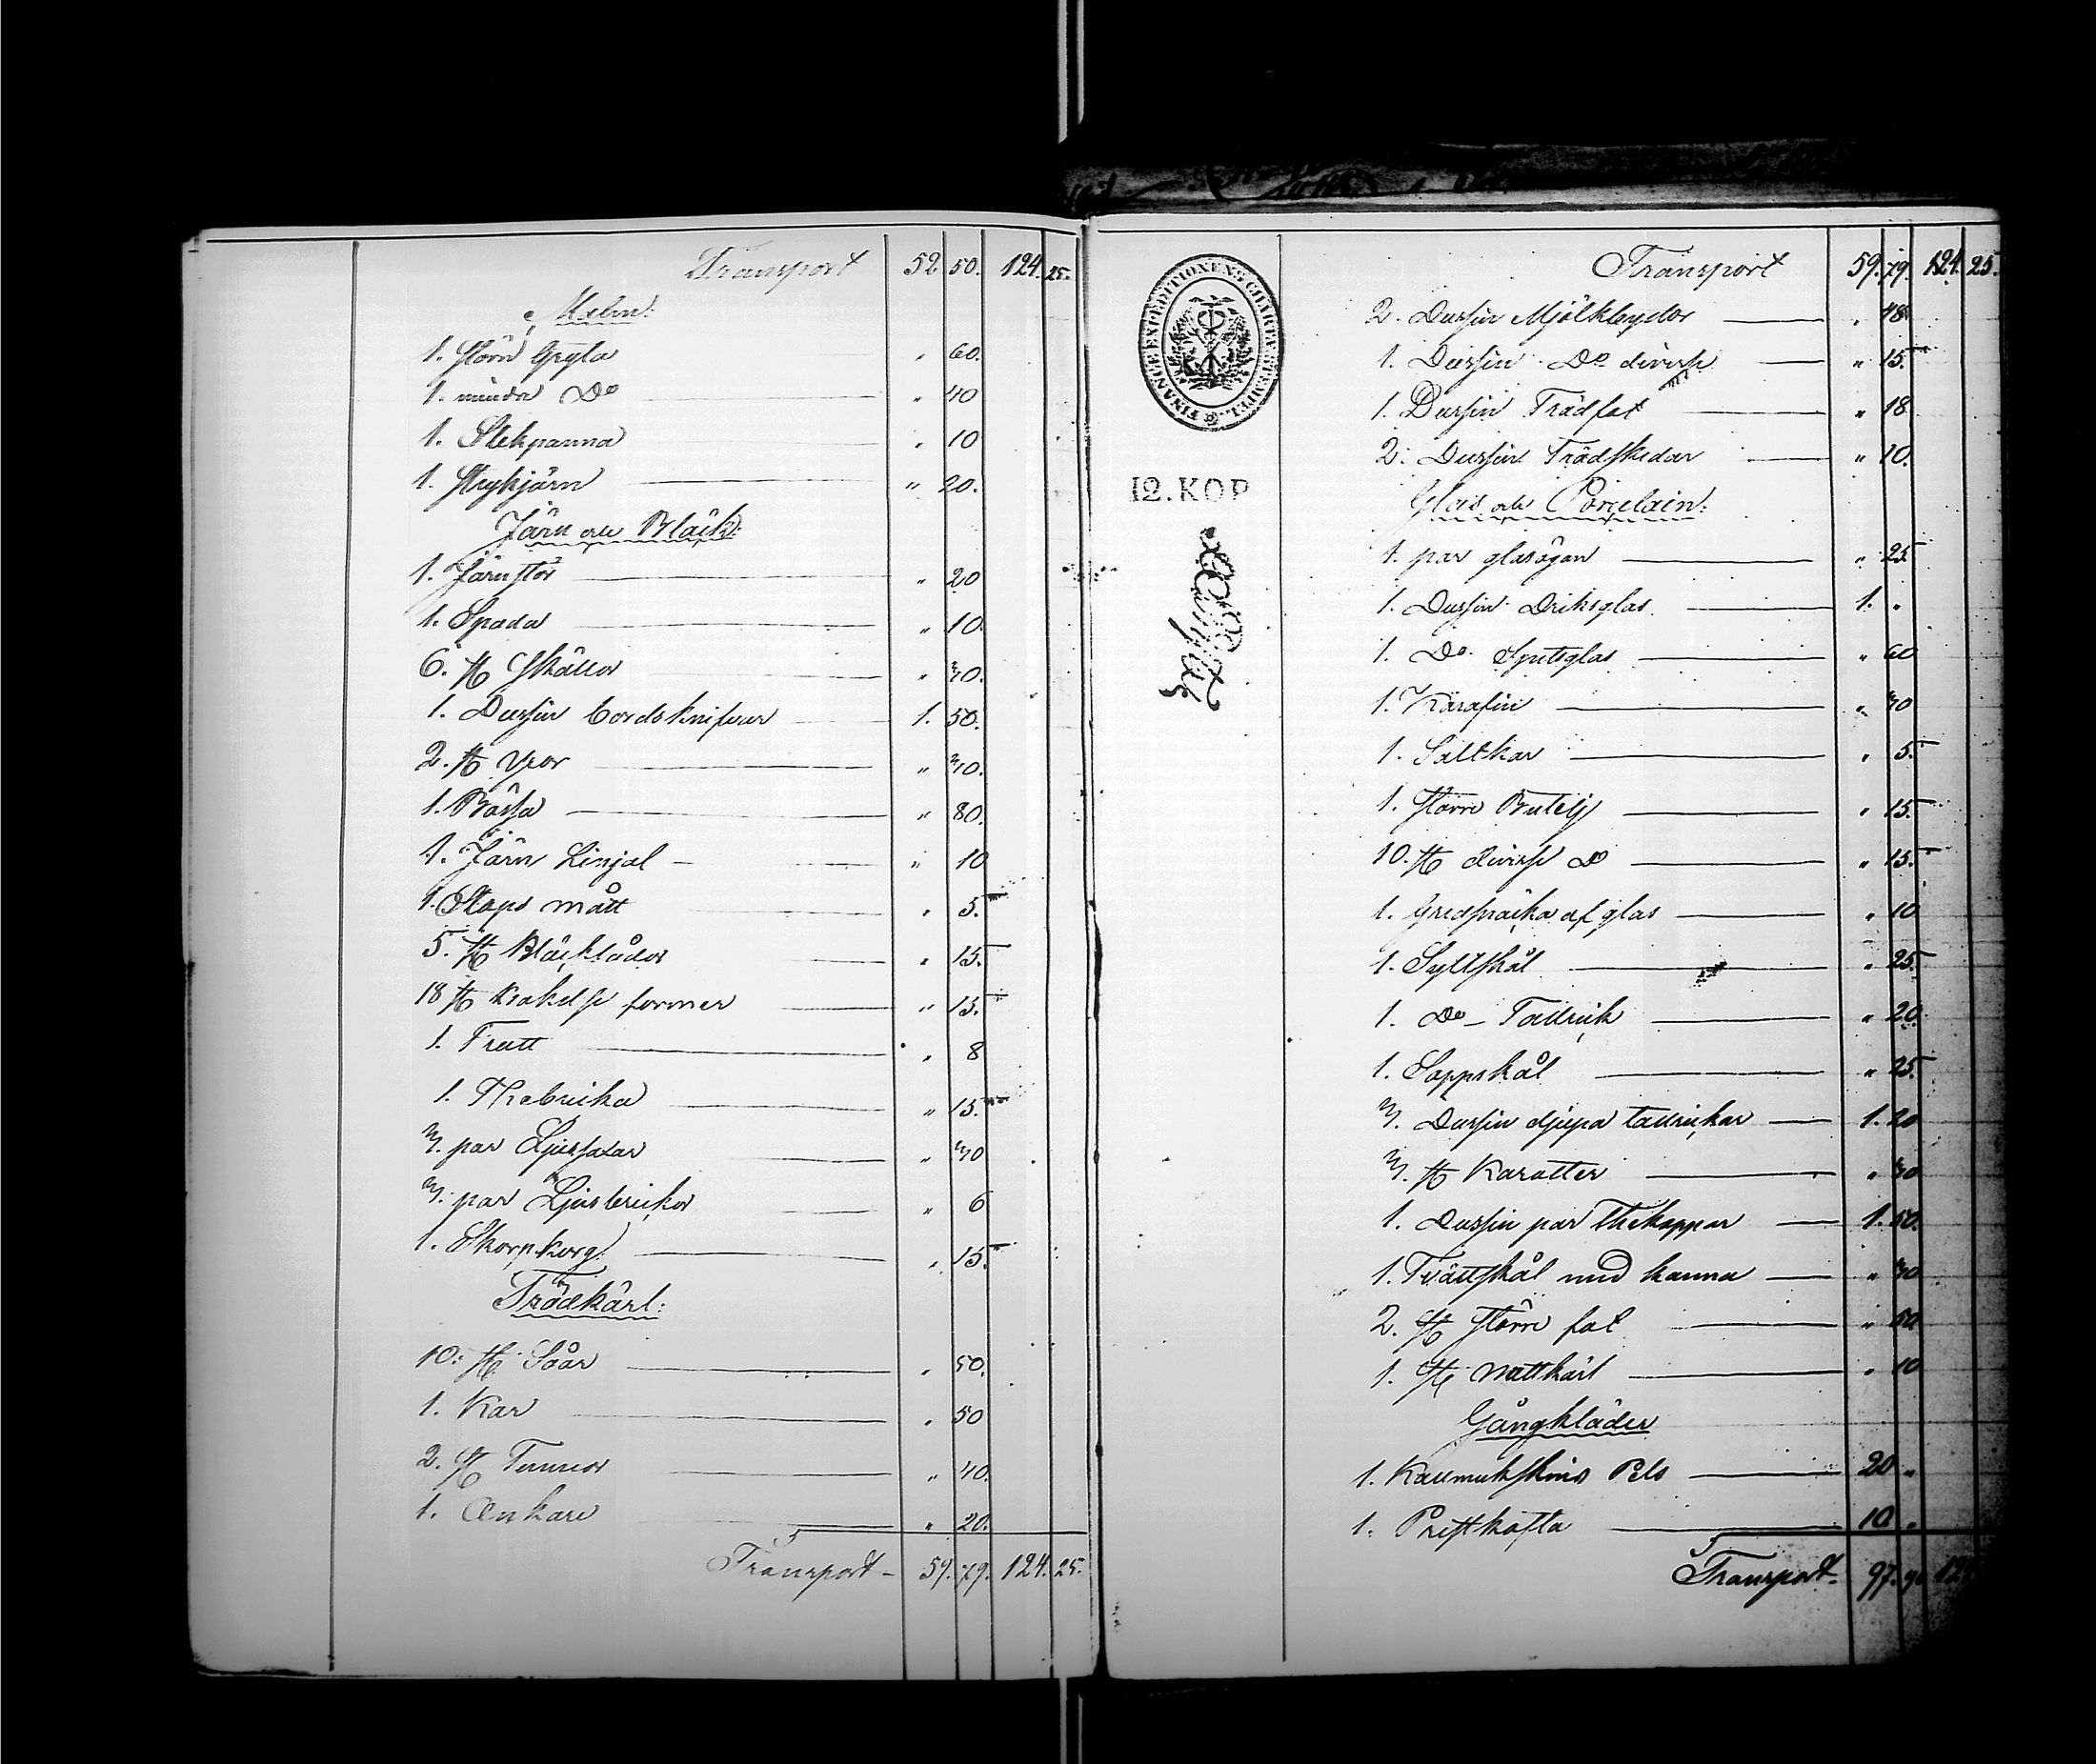 Transport 52 50. 124. 25.
Malm:
1. större Gryta " 60.
1. mindre Do " 40
1. Stekpanna " 10
1. Strykjärn " 20.
Järn och Bläck:
1. Järnstör " 20
1. Spada " 10.
6. st Skällor " 30.
1. Dussin bordsknifvar 1. 50.
2. st yxor " 30.
1. Bössa " 80.
1. Järn Linjal " 10
1. Stops mått " 5.
5. st Bläcklådor " 15.
18 st krakelse former " 15.
1. Tratt " 8
1. Thebricka " 15.
3. par Ljussaxar " 30
3. par Ljusbrickor " 6
1. Skorpkorg " 15.
Trädkärl:
10. st Såar " 50.
1. Kar " 50
2. st Tunnor " 40.
1. Ankare " 20.
Transport 59. 79. 124. 25.
FINANCE EXPEDITIONENS CHARTÆ STEMPEL
12. KOP
Transport 59. 79. 124. 25.
2. Dussin Mjölkbyttor " 48
1. Dussin Do diverse " 15.
1. Dussin Trädfat " 18
2. Dussin Trädskedar " 10.
Glas och Porcelain:
1. par glasögon " 25
1. Dussin Driksglas 1. "
1. Do Spetsglas " 60
1. Karafin " 30
1. Saltkar " 5.
1. större Butelj " 15.
10. st diverse Do " 15.
1. Gredsnäcka af glas " 10
1. Syltskål " 25.
1. Do Tallrick " 20
1. Soppskål " 25.
3. Dussin djupa tallrickar 1. 20
3. st Karotter " 30
1. Dussin par Thekoppar 1. 50.
1. Tvättskål med kanna " 30
2. st större fat " 50
1. st Nattkärl " 10
Gångkläder
1. Kallmukskins Pels 20 "
1. Prestkofta 10 "
Transport 97.